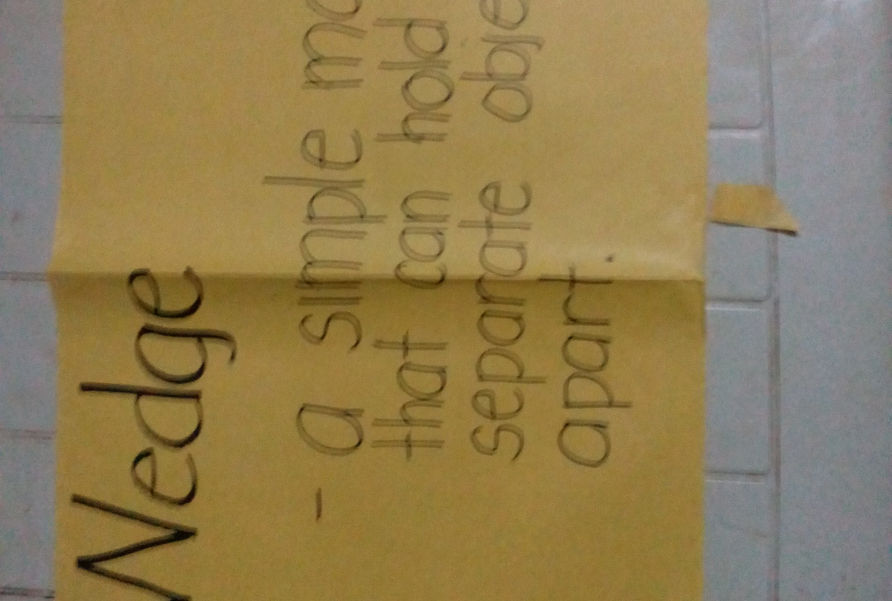 Wedge
- a simple
that can hold
separate
apart.